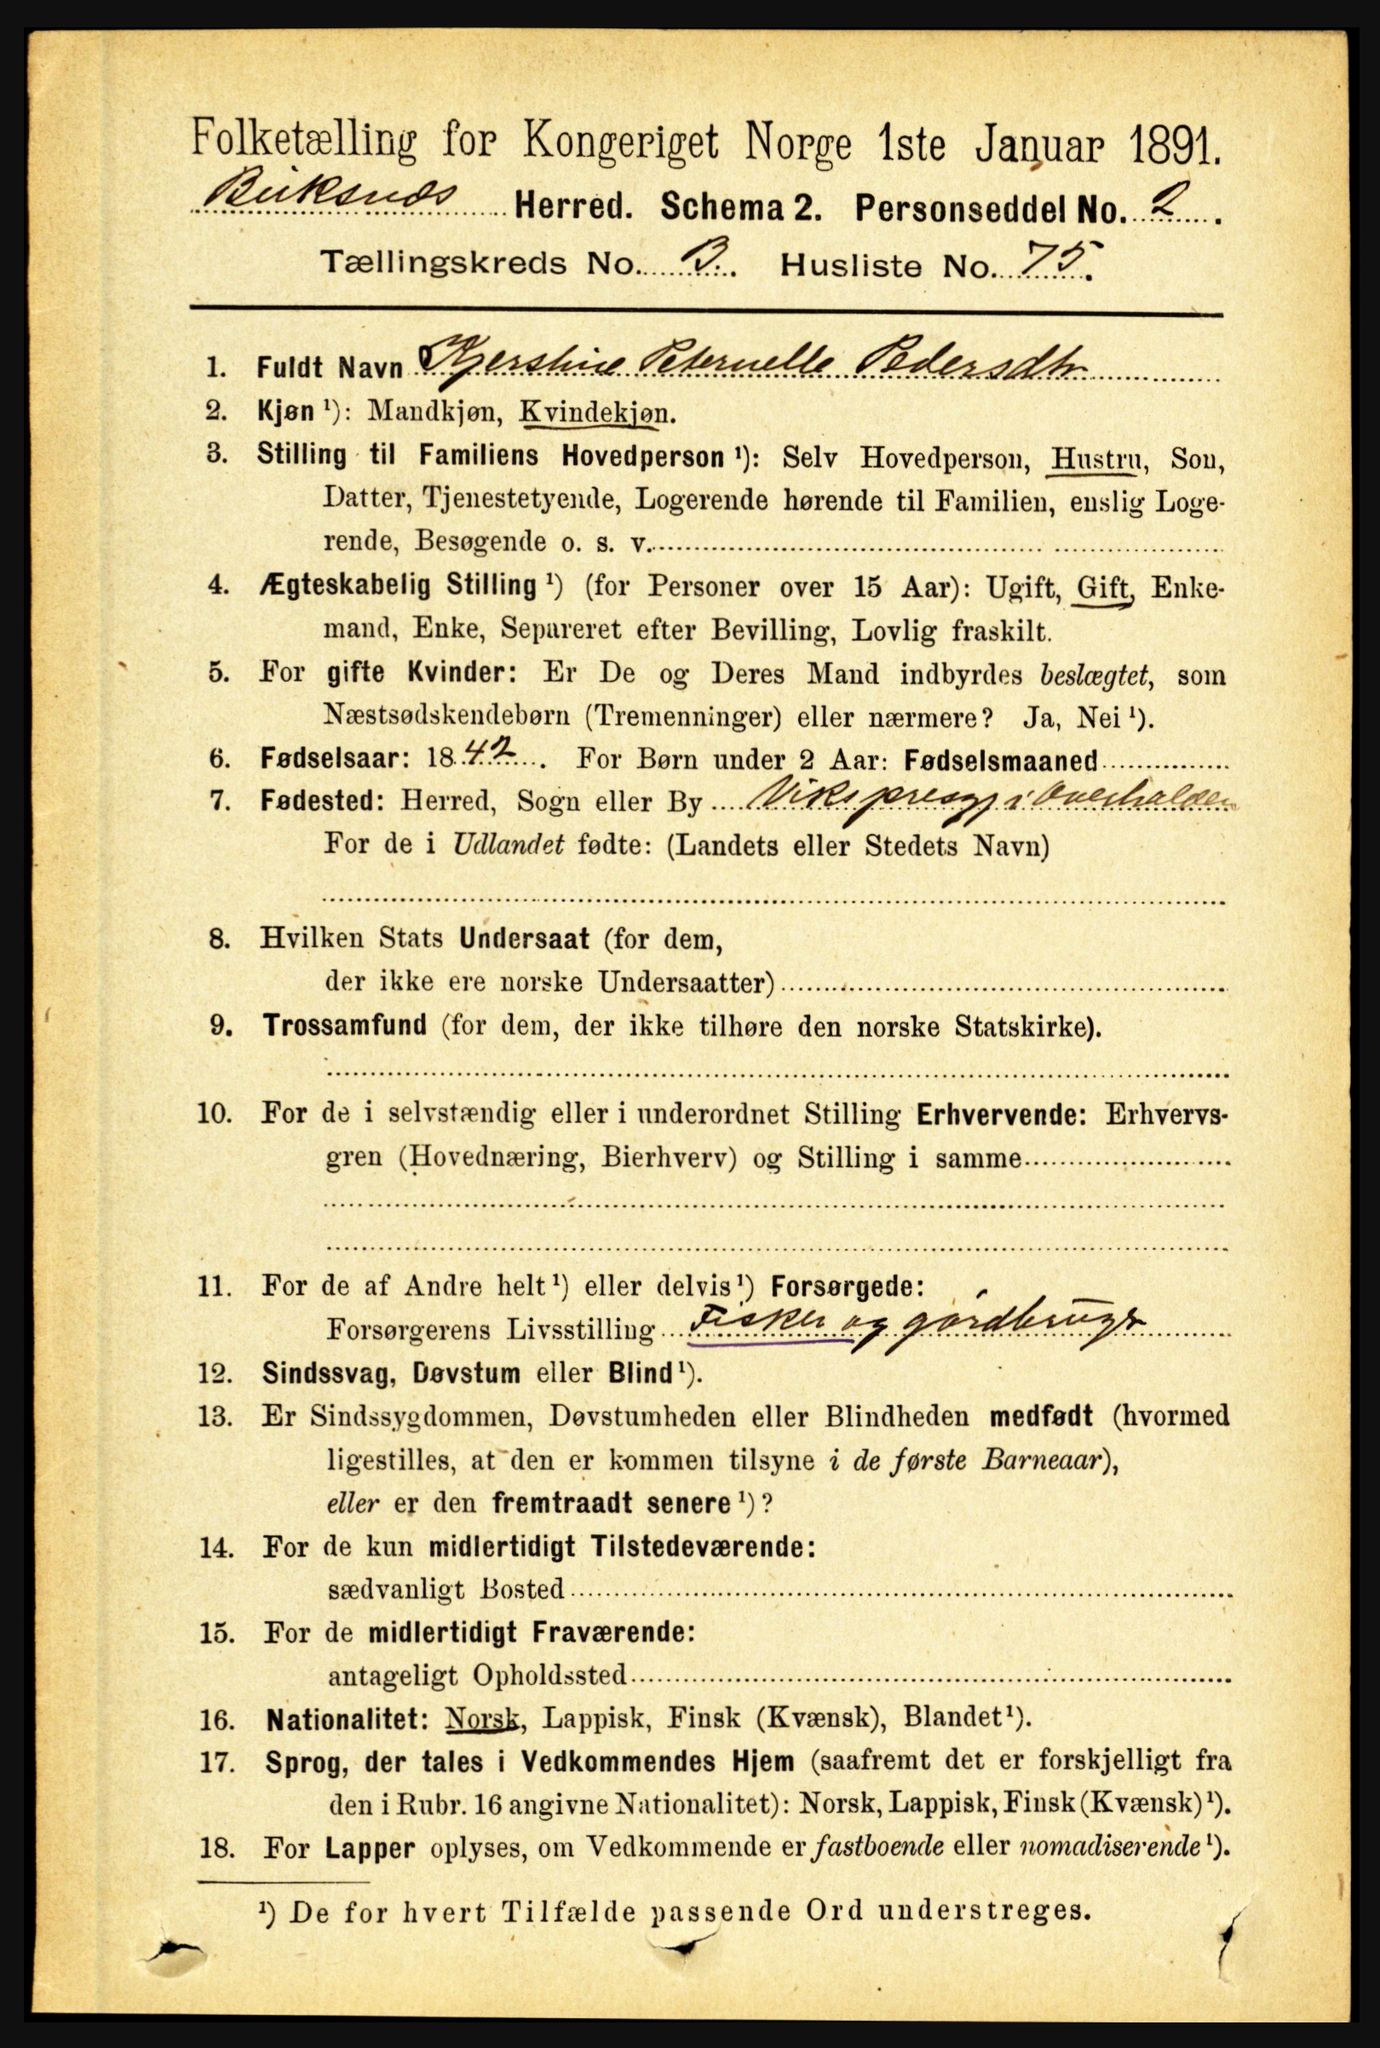 Folketælling for Kongeriget Norge 1ste Januar 1891.
Buksnæs Herred. Schema 2. Personseddel No. 2.
Tællingskreds No. 3. Husliste No. 75.
1. Fuldt Navn Kjerstine Peternelle Pedersdtr
2. Kjøn ¹): Mandkjøn, Kvindekjøn.
3. Stilling til Familiens Hovedperson ¹): Selv Hovedperson, Hustru, Son,
Datter, Tjenestetyende, Logerende hørende til Familien, enslig Loge-
rende, Besøgende o. s. v.
4. Ægteskabelig Stilling ¹) (for Personer over 15 Aar): Ugift, Gift, Enke-
mand, Enke, Separeret efter Bevilling, Lovlig fraskilt.
5. For gifte Kvinder: Er De og Deres Mand indbyrdes beslægtet, som
Næstsødskendebørn (Tremenninger) eller nærmere? Ja, Nei ¹).
6. Fødselsaar: 1842. For Børn under 2 Aar: Fødselsmaaned
7. Fødested: Herred, Sogn eller By Viks presgj i Overhalden
For de i Udlandet fødte: (Landets eller Stedets Navn)
8. Hvilken Stats Undersaat (for dem,
der ikke ere norske Undersaatter)
9. Trossamfund (for dem, der ikke tilhøre den norske Statskirke).
10. For de i selvstændig eller i underordnet Stilling Erhvervende: Erhvervs-
gren (Hovednæring, Bierhverv) og Stilling i samme
11. For de af Andre helt ¹) eller delvis ¹) Forsørgede:
Forsørgerens Livsstilling Fisker og gårdbruger
12. Sindssvag, Døvstum eller Blind ¹).
13. Er Sindssygdommen, Døvstumheden eller Blindheden medfødt (hvormed
ligestilles, at den er kommen tilsyne i de første Barneaar),
eller er den fremtraadt senere ¹)?
14. For de kun midlertidigt Tilstedeværende:
sædvanligt Bosted
15. For de midlertidigt Fraværende:
antageligt Opholdssted
16. Nationalitet: Norsk, Lappisk, Finsk (Kvænsk), Blandet ¹).
17. Sprog, der tales i Vedkommendes Hjem (saafremt det er forskjelligt fra
den i Rubr. 16 angivne Nationalitet): Norsk, Lappisk, Finsk (Kvænsk) ¹).
18. For Lapper oplyses, om Vedkommende er fastboende eller nomadiserende ¹).
¹) De for hvert Tilfælde passende Ord understreges.